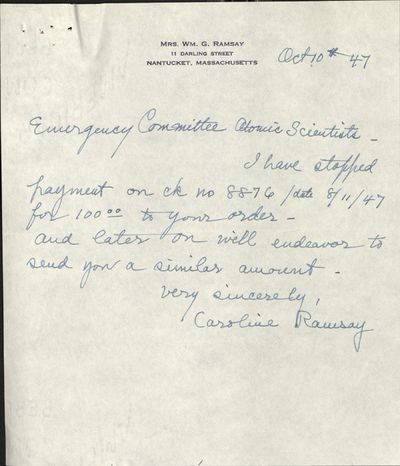 MRS. WM. G. RAMSAY
11 DARLING STREET
NANTUCKET, MASSACHUSETTS
Oct 10th 47
Emergency Committee Atomic Scientists -
I have stopped
payment on ck no 8876 /date 8/11/47
for 100 00 to your order -
and later on will endeavor to
send you a similar amount -
Very sincerely,
Caroline Ramsay